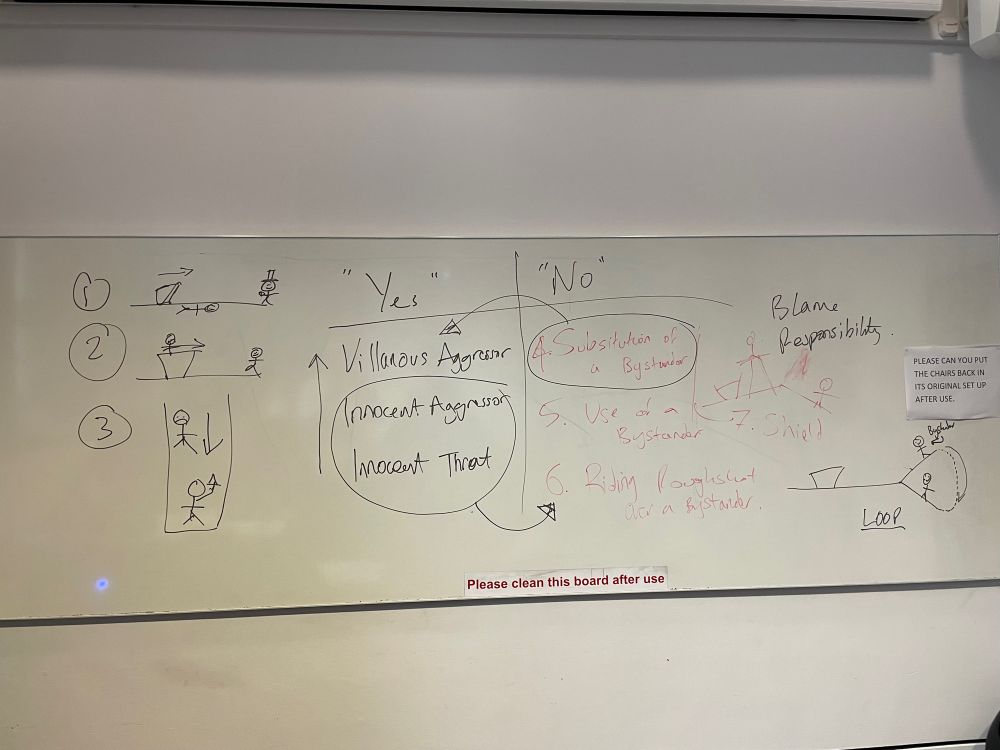 1
2
3
"Yes"
Villanous Aggressor
Innocent Aggressor
Innocent Threat
"No"
4. Subsitution of
a Bystander
5. Use of a
Bystander
6. Riding Roughshod
Over a Bystander.
7. Shield
Blame
Responsibility.
PLEASE CAN YOU PUT
THE CHAIRS BACK IN
ITS ORIGINAL SET UP
AFTER USE.
Bystander
LOOP
Please clean this board after use